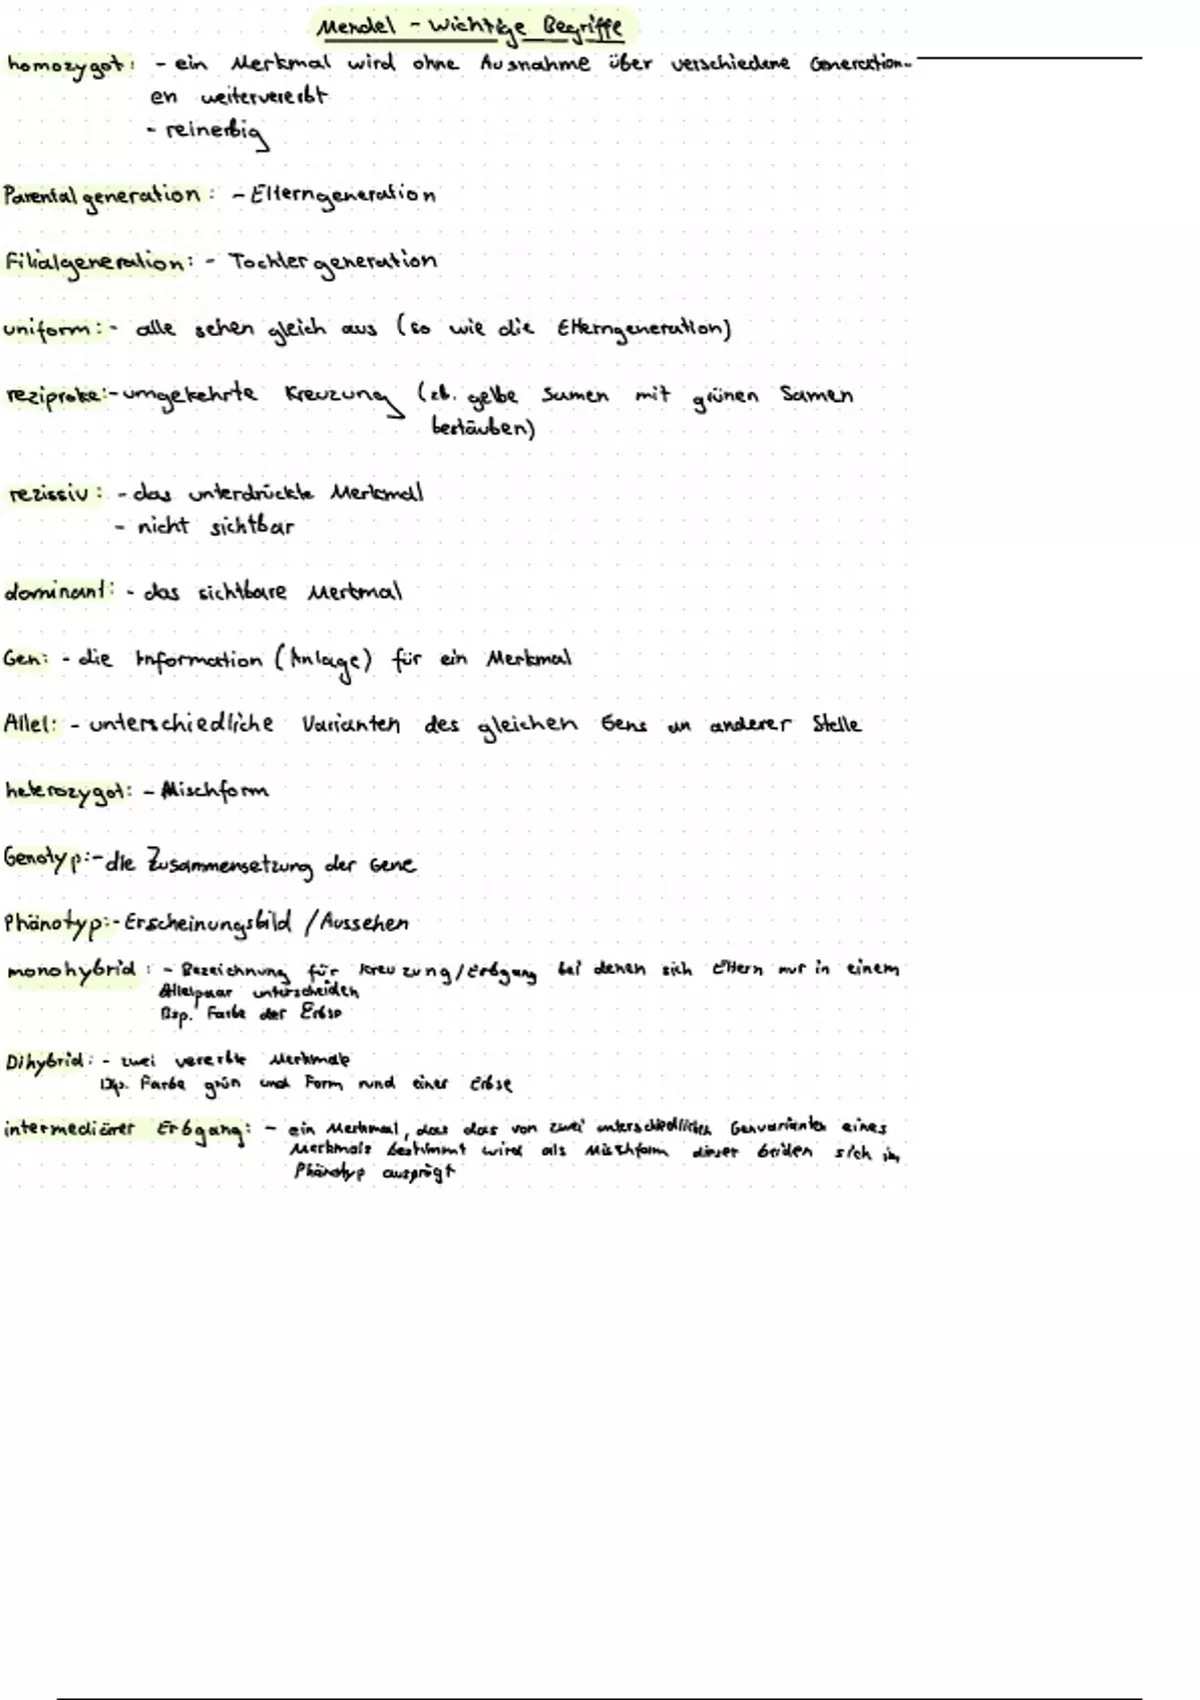 Mendel - Wichtige Begriffe
homozygot: - ein Merkmal wird ohne Ausnahme über verschiedene Generation-
en weitervererbt
- reinerbig
Parentalgeneration: - Elterngeneration
Filialgeneration: - Tochtergeneration
uniform: - alle sehen gleich aus (so wie die Elterngeneration)
reziproke: - umgekehrte Kreuzung (zb. gelbe Samen mit grünen Samen
bestäuben)
rezissiv: - das unterdrückte Merkmal
- nicht sichtbar
dominant: - das sichtbare Merkmal
Gen: - die Information (Anlage) für ein Merkmal
Allel: - unterschiedliche Varianten des gleichen Gens an anderer Stelle
heterozygot: - Mischform
Genotyp: - die Zusammensetzung der Gene
Phänotyp: - Erscheinungsbild / Aussehen
monohybrid: - Bezeichnung für Kreuzung/Erbgang bei denen sich Eltern nur in einem
Allelpaar unterscheiden
Bsp. Farbe der Erbse
Dihybrid: - zwei vererbte Merkmale
Bsp. Farbe grün und Form rund einer Erbse
intermediärer Erbgang: - ein Merkmal, das das von zwei unterschiedlichen Genvarianten eines
Merkmals bestimmt wird als Mischform dieser beiden sich im
Phänotyp ausprägt